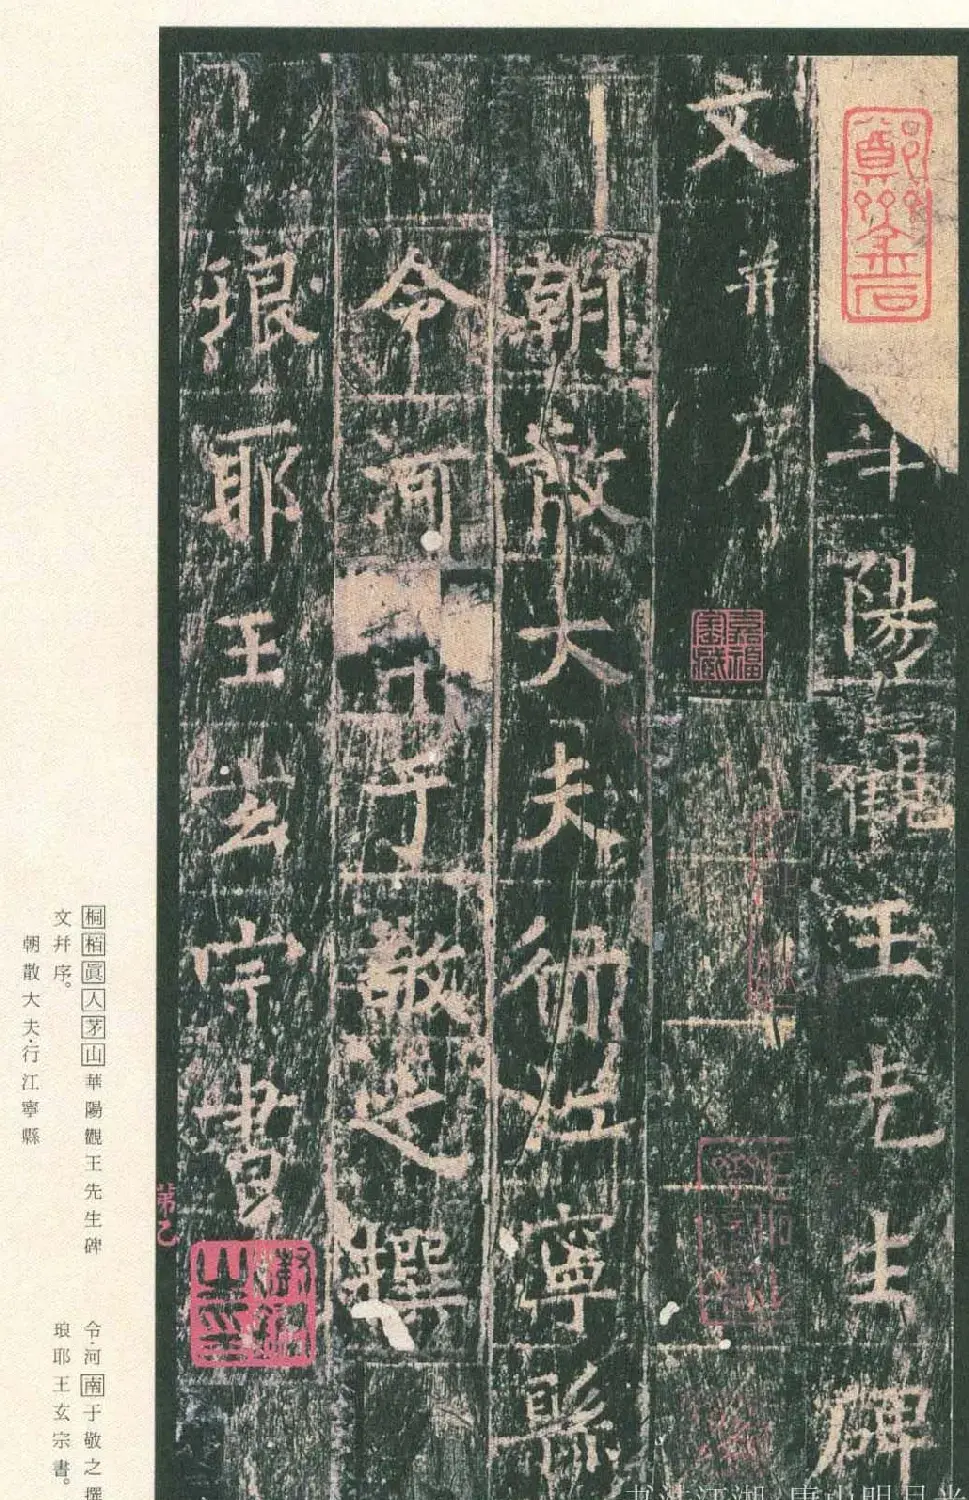 華陽觀王先生碑
文并序
朝散大夫行江寧縣
令河南于敬之撰
琅耶王玄宗書
嘉福
第乙
桐栢眞人茅山華陽觀王先生碑
文幷序。
朝散大夫·行江寧縣
令·河南于敬之撰
琅耶王玄宗書。